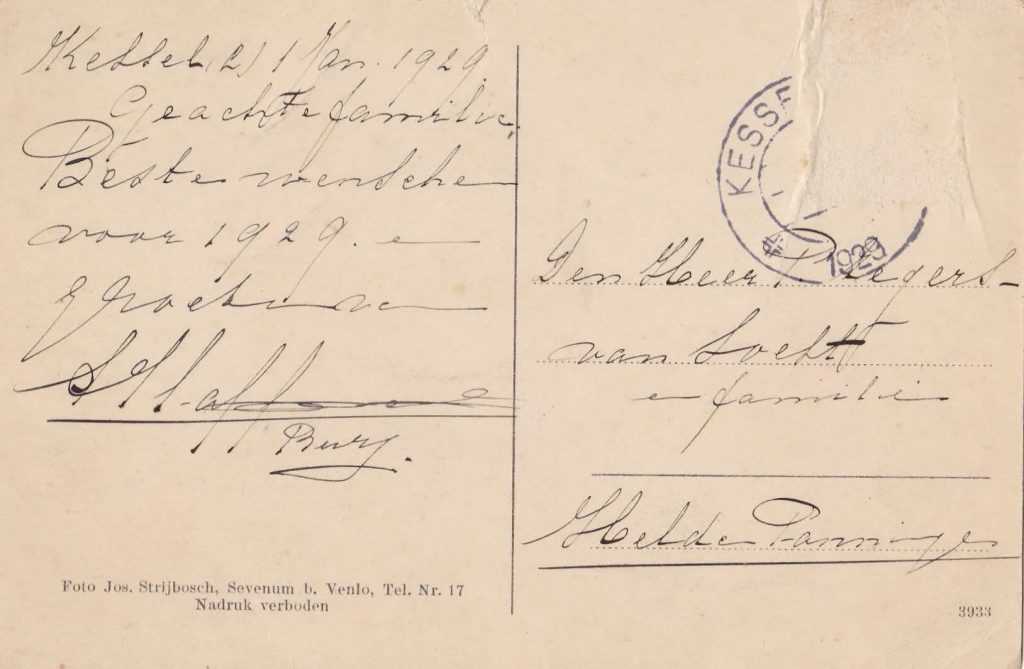 Kessel (L) 1 Jan. 1929
Geachte familie,
Beste wenschen
voor 1929. en
groeten van
Burg.
KESSE
1929
Den Heer
van Soest
en familie
Helden Panningen
Foto Jos. Strijbosch, Sevenum b. Venlo, Tel. Nr. 17
Nadruk verboden
3933